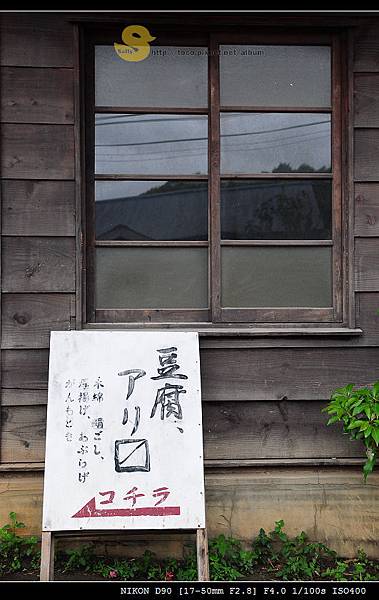 Sally
http://toco.pixnet.net/album
豆腐、
アリ〼
木綿 絹ごし、
厚揚げ、あぶらげ
がんもとき
コチラ
NIKON D90 [17-50mm F2.8] F4.0 1/100s ISO400